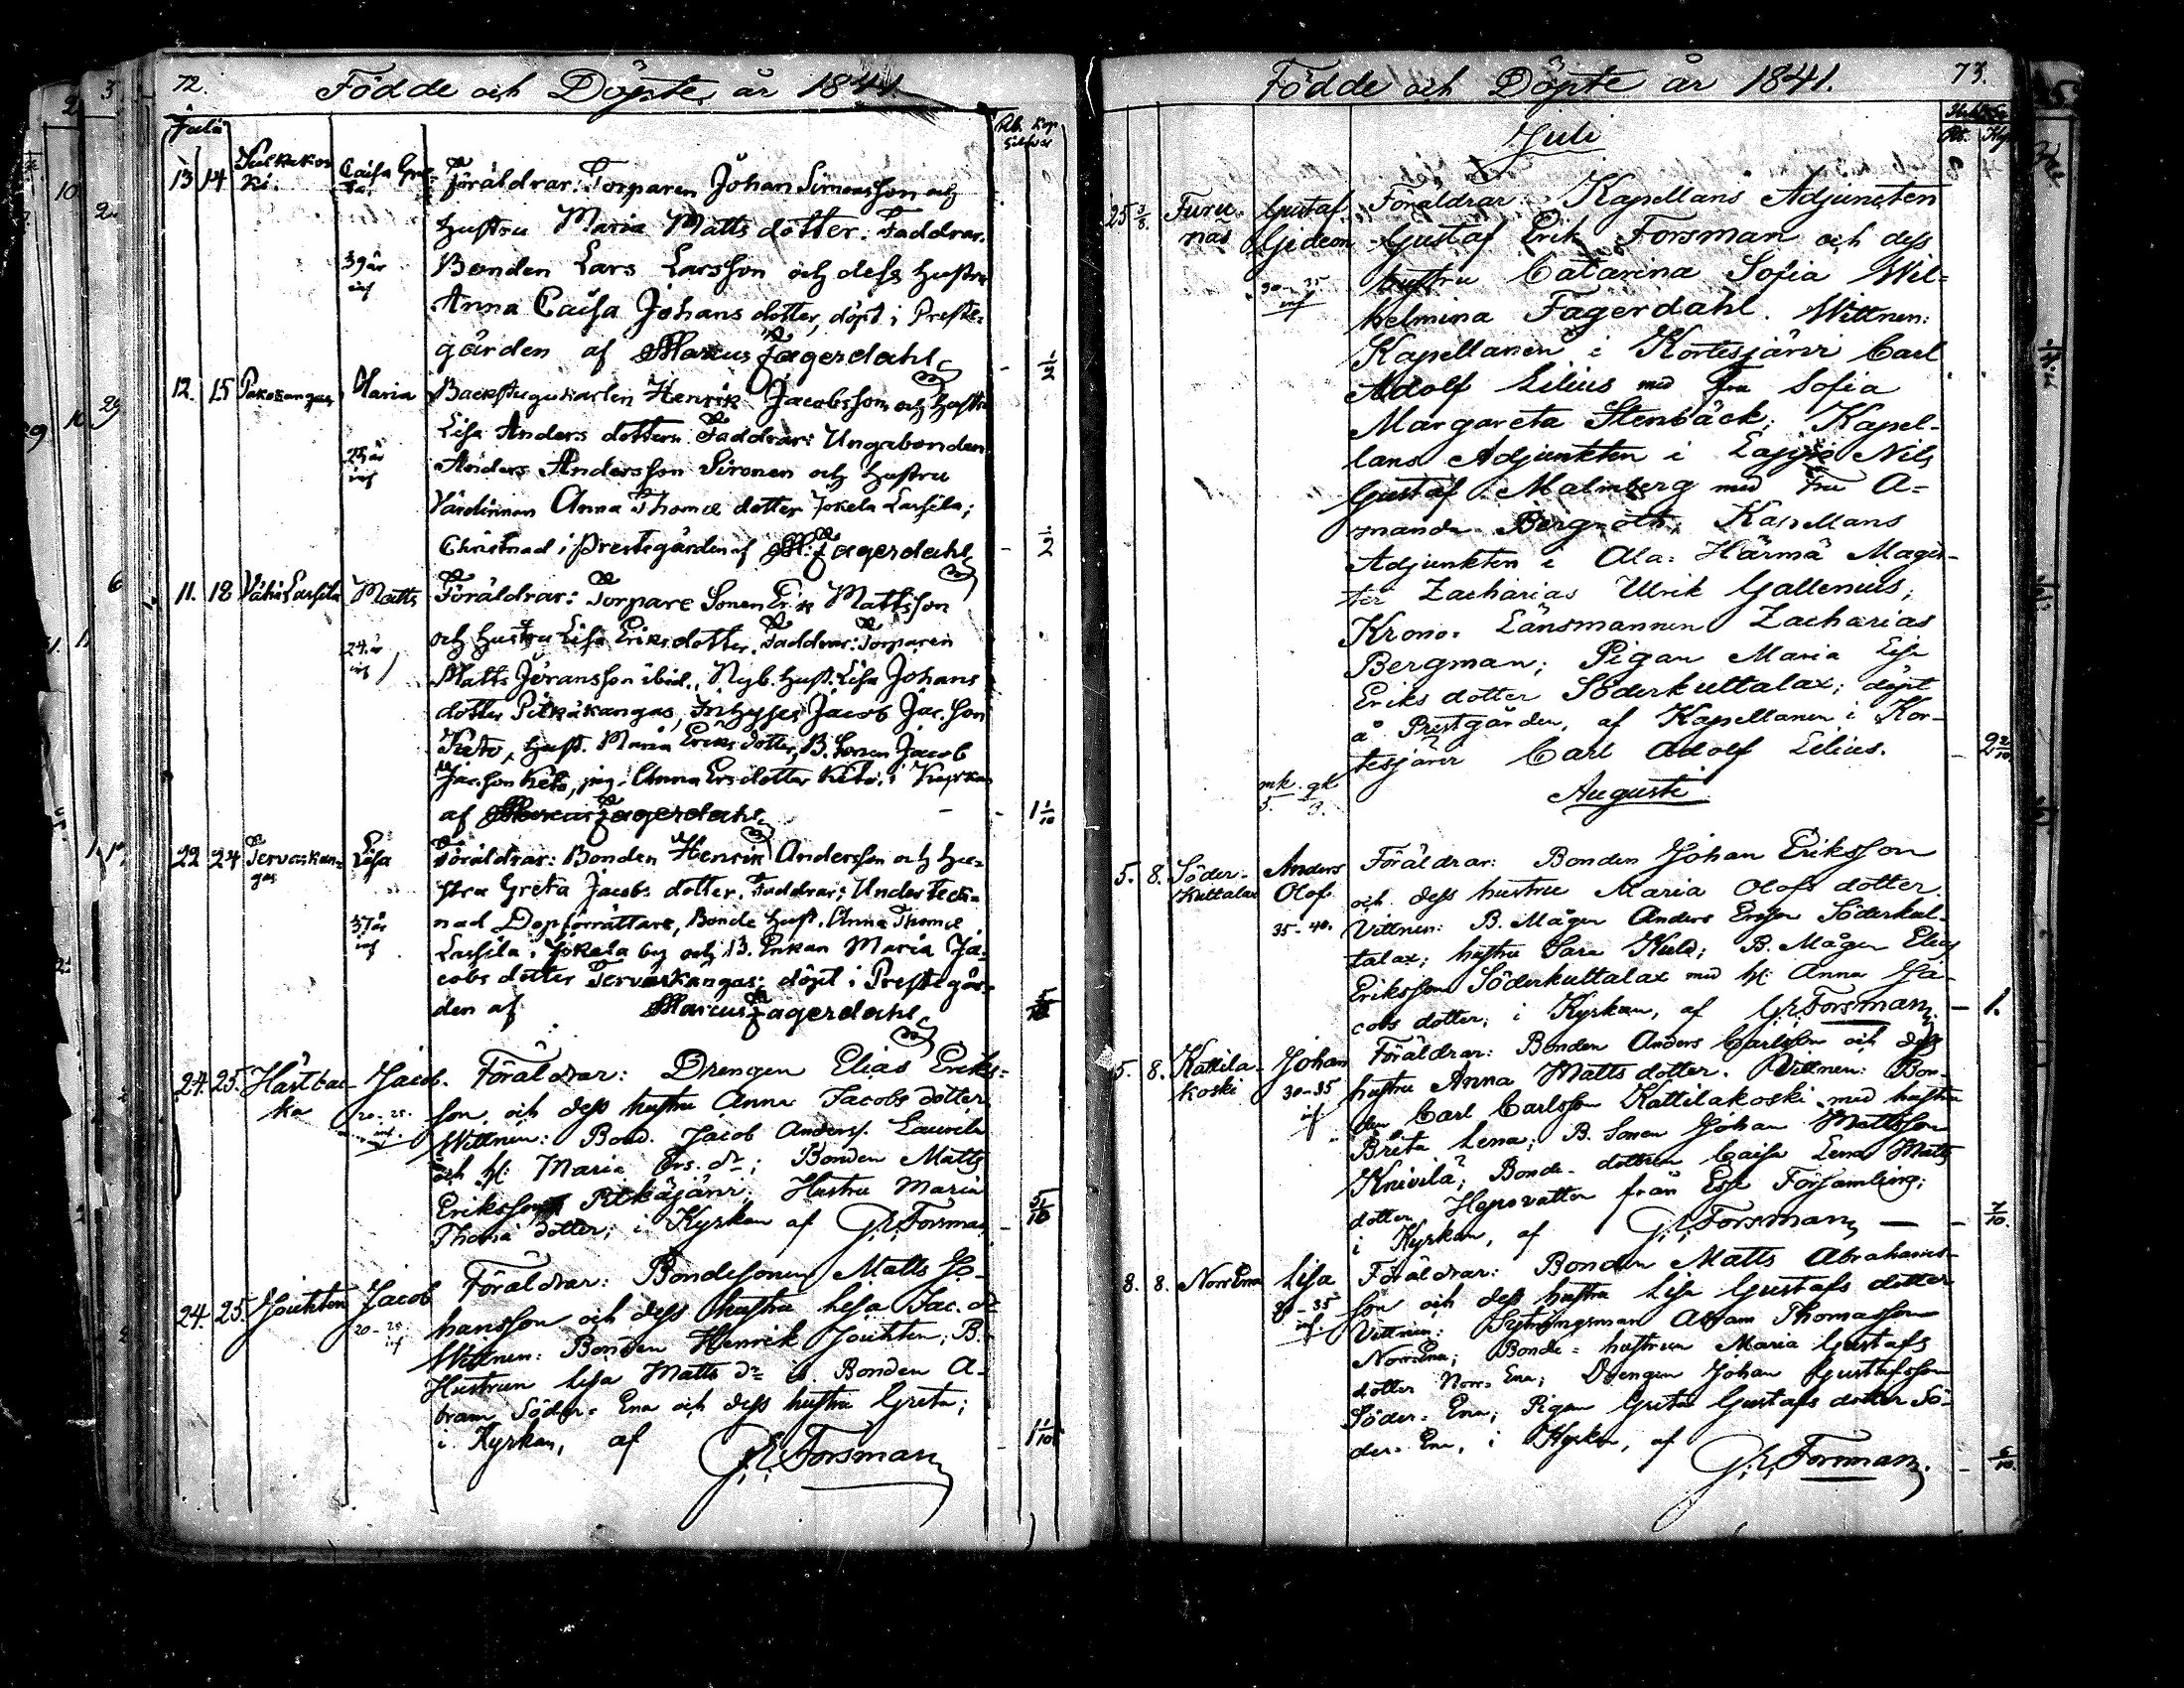 72. Födde och Döpte, år 1841.
Juli
Rb. Kop
Silfver
13 14 Caisa Gre-
ta
Föräldrar: Torparen Johan Simonsson och
hustru Maria Matts dotter. Faddrar.
39 år
inf
Bonden Lars Larsson och dess hustru
Anna Caisa Johans dotter, döpt i Preste-
gården af Marcus Fagerdahl
- 1/2
12. 15 Pakokangas Maria Backstugukarlen Henrik Jacobsson och hustru
Lisa Anders dotter. Faddrar: Ungabonden
inf
Anders Andersson Sironen och hustru
Värdinnan Anna Thomæ dotter Jokela Lassila;
Christnad i Prestegården af M. Fagerdahl
- 1/2
11. 18 Vähä Lassila Matts Föräldrar: Torpare Sonen Erik Mattsson
24 år
inf
och hustru Lisa Eriksdotter. Faddrar: Torparen
Matts Jöransson ibid., Nyb. hust. Lisa Johans
dotter Pitkäkangas, Inhyses Jacob Jac. son
Keto, hust. Maria Eriks dotter, B. Sonen Jacob
Jac. son Keto, pig. Anna Ersdotter Keto; i Kyrkan
af Marcus Fagerdahl
- 1 1/10
22 24 Tervaskan-
gas
Lisa
Föräldrar: Bonden Henrik Andersson och hu-
stru Greta Jacobs dotter. Faddrar: Underteck-
37 år
inf
nad Dopförrättare, Bonde hust. Anna Thomæ
Lassila i Jokela by och B. Enkan Maria Ja-
cobs dotter Tervaskangas; döpt i Prestegår-
den af Marcus Fagerdahl
24. 25. Hästbac-
ka
Jacob.
20-25.
inf.
Föräldrar: Drengen Elias Eriks-
son och dess hustru Anna Jacobs dotter
Wittnen: Bond. Jacob Anderss. Laurila
och h: Maria Ers. dr; Bonden Matts
Eriksson Pitkäjärvi; Hustru Maria
Thomæ dotter; i Kyrkan af G. E. Forsman
- 5/10
24. 25. Jouhten Jacob
20-25.
inf
Föräldrar: Bondesonen Matts Jo-
hansson och dess hustru Lisa Jac. dr
Wittnen: Bonden Henrik Jouhten; B.
Hustrun Lisa Matts dr Bonden A-
bram Söder-Ena och dess hustru Greta;
i Kyrkan, af G. E. Forsman
- 1 1/10
Födde och Döpte år 1841. 73.
Juli
25 1/8. Furu-
näs
Gustaf
Gideon
30-35
inf
Föräldrar: Kapellans Adjuncten
Gustaf Erik Forsman och dess
hustru Catarina Sofia Wil-
helmina Fagerdahl. Wittnen:
Kapellanen i Kortesjärvi Carl
Adolf Lilius med Fru Sofia
Margareta Stenbäck; Kapel-
lans Adjunkten i Lappo Nils
Gustaf Malmberg med Fru A-
manda Bergroth; Kapellans
Adjunkten i Ala-Härmä Magis-
ter Zacharias Ulrik Gallenius;
Krono-Länsmannen Zacharias
Bergman; Pigan Maria Lisa
Eriks dotter Söderkultalax; döpt
å Prestgården, af Kapellanen i Kor-
tesjärvi Carl Adolf Lilius.
- 2 2/10
mk. qk
5. 3.
Augusti
5. 8. Söder-
Kultalax
Anders
Olof
35-40.
Föräldrar: Bonden Johan Eriksson
och dess hustru Maria Olofs dotter.
Vittnen: B. Mågen Anders Ersson Söderkul-
talax; hustru Sara Kuld; B. Mågen Elias
Eriksson Söderkultalax med h: Anna Ja-
cobs dotter; i Kyrkan, af G. E. Forsman
- 1.
5. 8. Kattila-
koski
Johan
30-35
inf
Föräldrar: Bonden Anders Carlsson och dess
hustru Anna Matts dotter. Vittnen: Bon-
den Carl Carlsson Kattilakoski med hustru
Brita Lena; B. Sonen Johan Mattsson
Knivilä; Bonde-dottren Caisa Lena Matts
dotter från Esse Församling;
i Kyrkan, af G. E. Forsman
- 7/10.
8. 8. Norr Ena Lisa
30-35
inf.
Föräldrar: Bonden Matts Abrahams-
son och dess hustru Lisa Gustafs dotter
Vittnen: Sytningsman Abram Thomasson
Norr Ena; Bonde-hustrun Maria Gustafs
dotter Norr-Ena; Drengen Johan Gustafsson
Söder-Ena; Pigan Greta Gustafs dotter Sö-
der-Ena, i Kyrkan, af G. E. Forsman.
- 6/10.